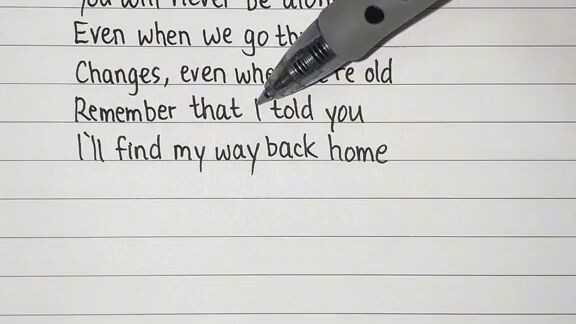 you will never be alone
Even when we go th
Changes, even whe re old
Remember that I told you
I'll find my way back home